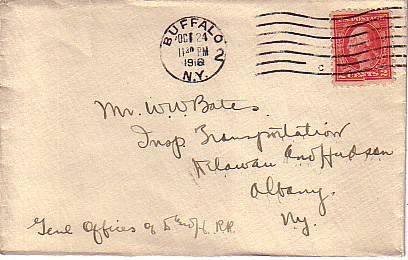 BUFFALO
OCT 24
11 30 PM
1918
N.Y.
2
2 CENTS 2
Mr. W. W. Bates.
Insp. Transportation
Delaware and Hudson
Albany.
N.Y.
Genl Offices of D and H. R.R.